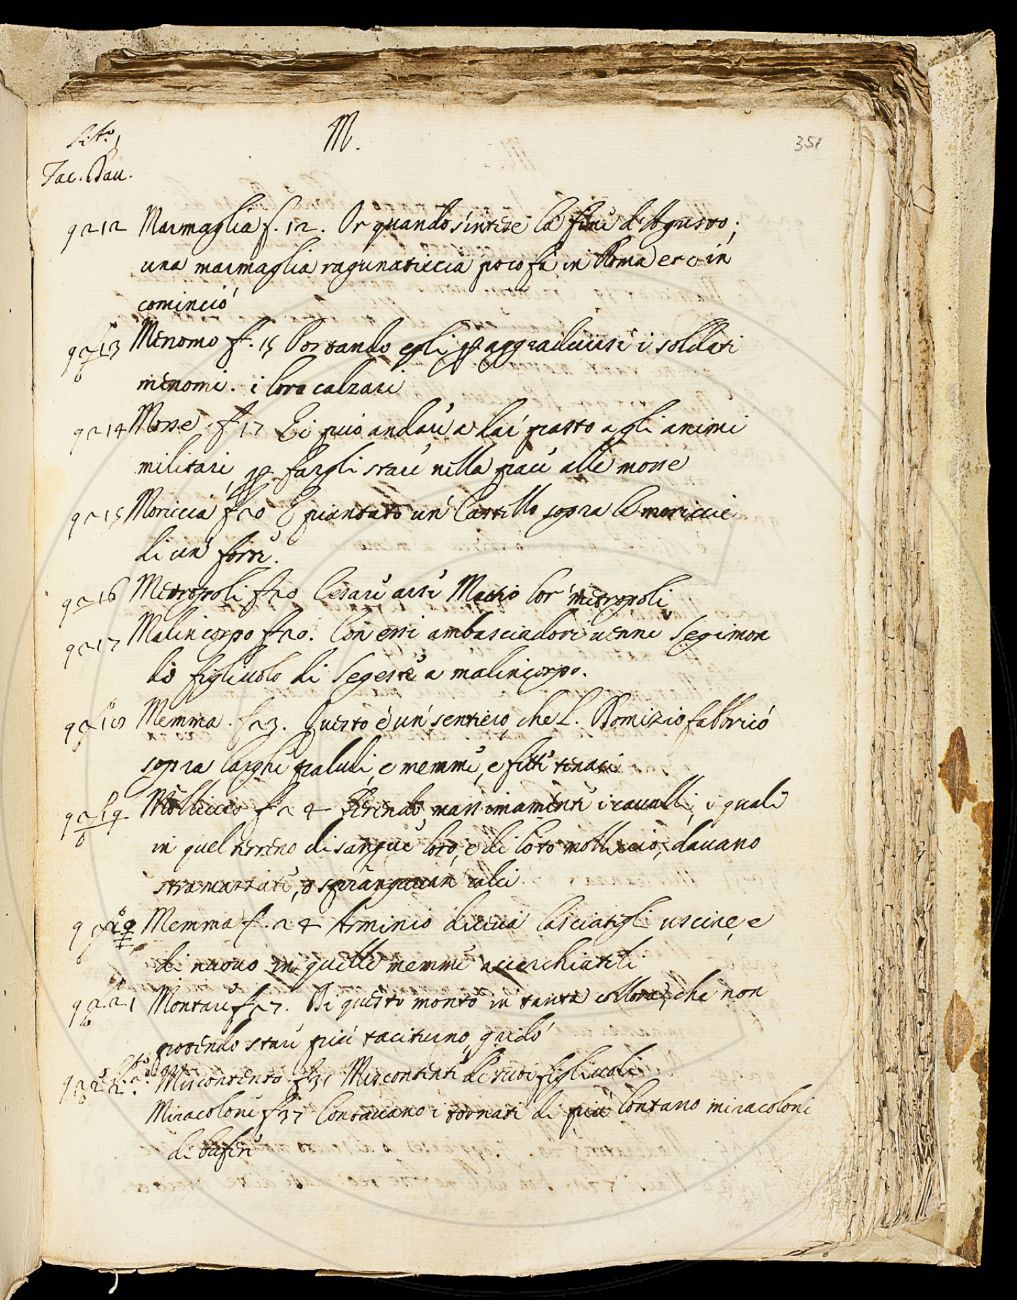 M.
351
Tac. Dau.
Marmaglia f. 12. Or quando s'intese la fine d'Agusto;
una marmaglia ragunaticcia poco fa in Roma etc in
cominciò
Menomo f. 15 Portando egli p aggraduirsi i soldati
menomi. i loro calzari
Mosse f. 17 Ei può andare a lai piatto agli animi
militari p fargli stare nella pace alle mosse
Moriccia f. 20 E piantato un Castello sopra le moriccie
di un forte.
Metropoli f. 20 Cesare arse Mattio lor metropoli
Malincorpo f. 20. Con essi ambasciadori venne Segimon
do figliuolo di Segeste a malincorpo.
Memma. f. 23. Questo è un sentiero, che L. Domizio fabbricò
sopra larghi paludi, e memme, e fitti tenaci
Molliccio f. 24 Ferendo massimamente i cavalli, i quali
in quel terreno di sangue loro, e di loto molliccio, davano
stramazzate, o sprangavan calci
Memma f. 24 Arminio diceva lasciategli uscire, e
di nuovo in quelle memme accerchiateli
Montare f. 27. Di questo montò in tanta collora, che non
potendo stare più taciturno, gridò
Miscontento f. 31 Miscontenti di suoi figliuoli
Miracolone f. 37 Contavano i tornati di più lontano miracoloni
di bufere